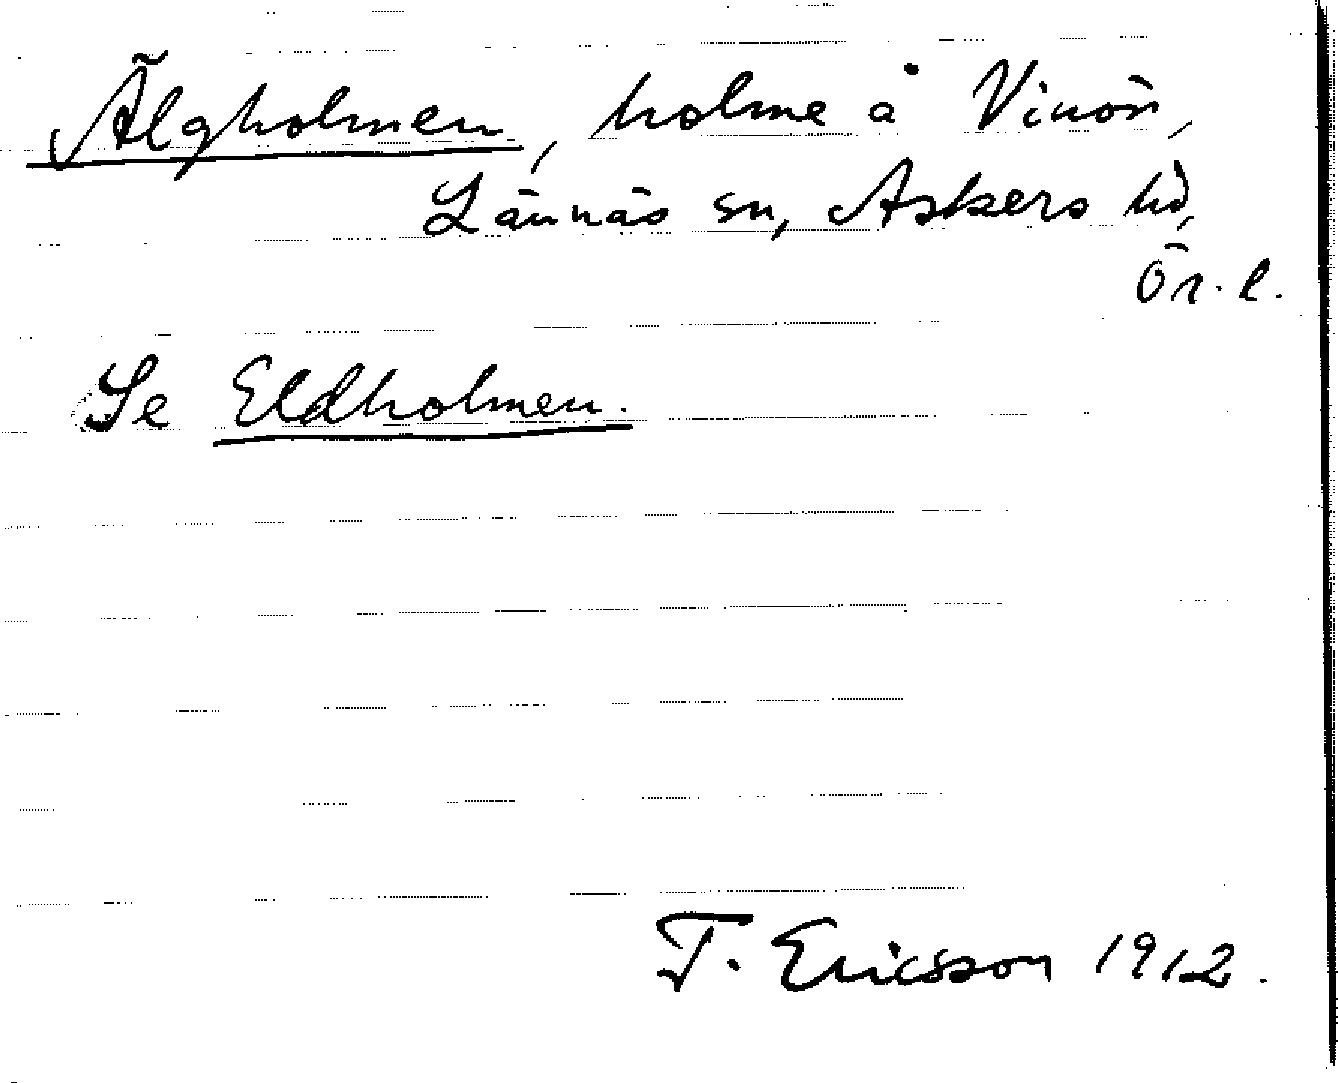 Älgholmen, holme å Vinön,
Lännäs sn, Askers hd,
Ör. l.
Se Eldholmen.
T. Ericsson 1912.